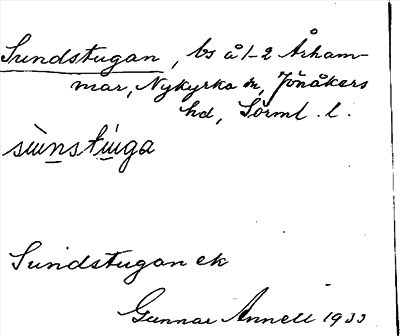 Sundstugan, bs å 1-2 Årham-
mar, Nykyrka sn, Jönåkers
hd, Sörml. l.
sùnstùga
Sundstugan ek
Gunnar Annell 1933